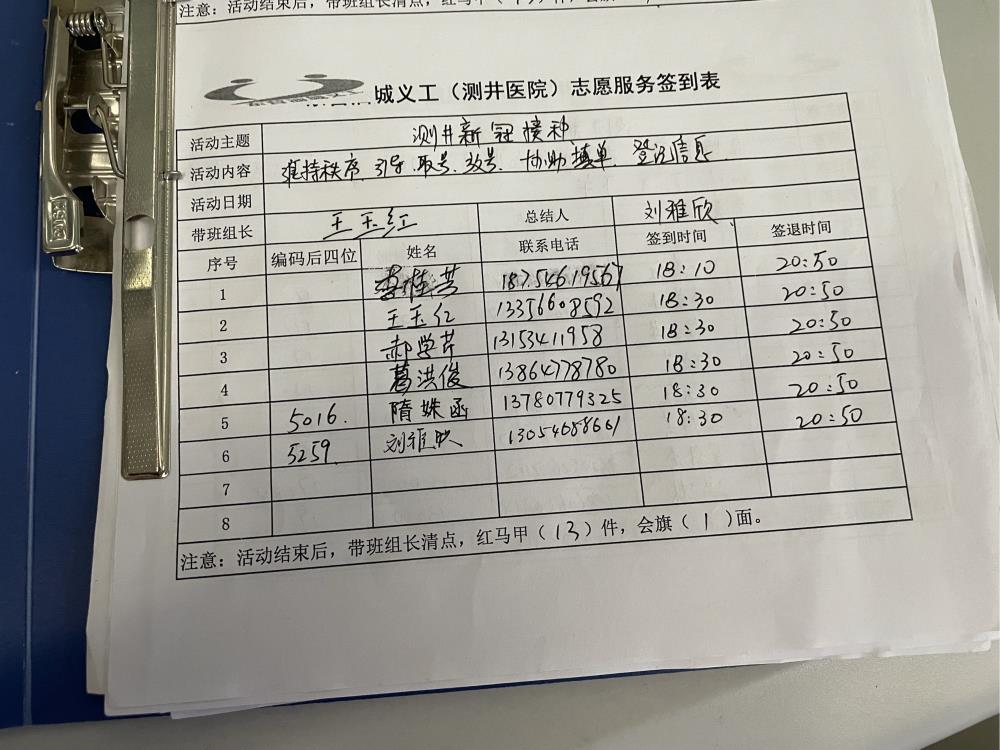 注意：活动结束后，带班组长清点，红马甲（ 13 ）件，会旗
城义工（测井医院）志愿服务签到表
活动主题 测井新冠接种
活动内容 维持秩序 引导 取号 放号 协助填单 登记信息
活动日期
带班组长 王玉红 总结人 刘雅欣
序号 编码后四位 姓名 联系电话 签到时间 签退时间
1 李桂芳 18754619567 18:10 20:50
2 王玉红 13356608592 18:30 20:50
3 郝学芹 13153411958 18:30 20:50
4 葛洪俊 13864778780 18:30 20:50
5 5016. 隋姝函 13780779325 18:30 20:50
6 5259 刘雅欣 13054658661 18:30 20:50
7
8
注意：活动结束后，带班组长清点，红马甲（ 13 ）件，会旗（ 1 ）面。